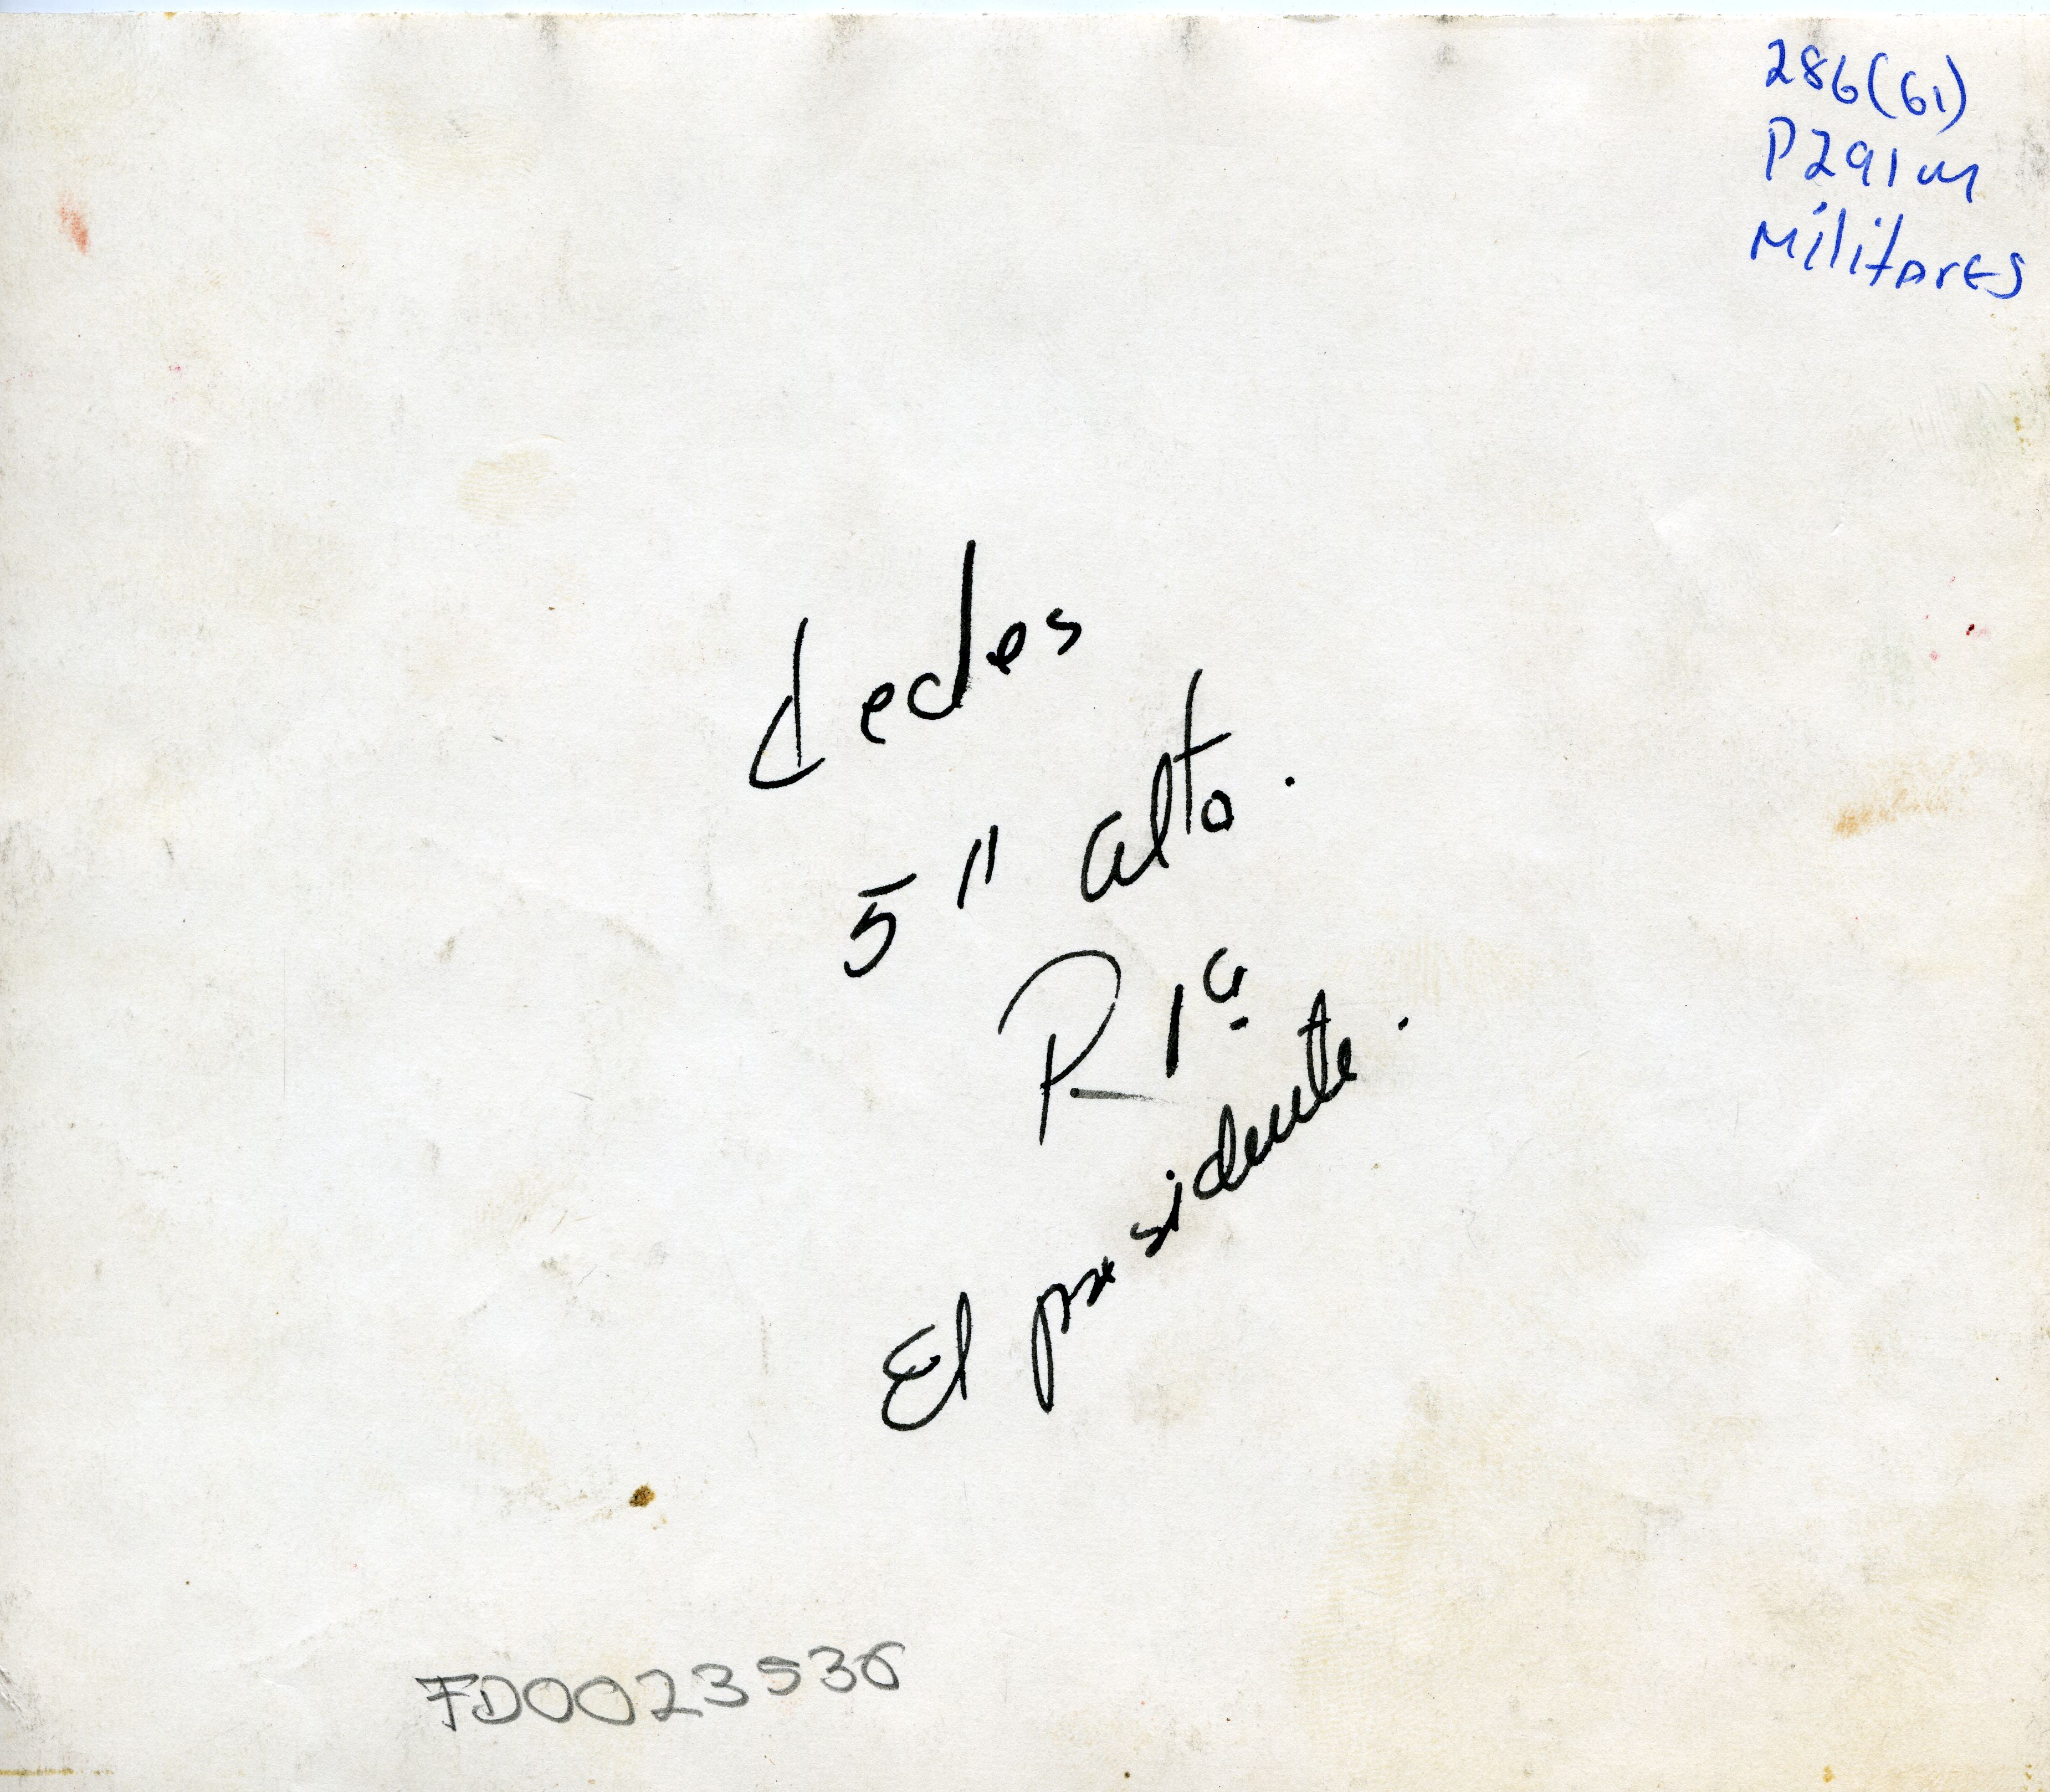 286(61)
P291m
Militares
dedes
5" alto.
R 1ª
El presidente.
FD0023536